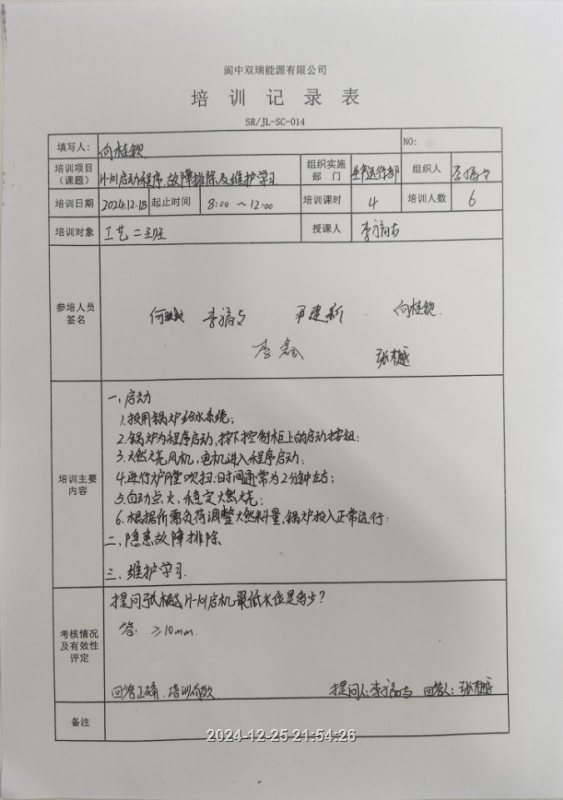 阆中双瑞能源有限公司
培训记录表
SR/JL-SC-014
填写人: 向桂钦 NO:
培训项目(课题) 启动程序、故障排除及维护学习 组织实施部门 生产运行部 组织人
培训日期 2024.12.18 起止时间 8:00 ~ 12:00 培训课时 4 培训人数 6
培训对象 工艺二班 授课人
参培人员签名
尹建新 向桂钦
李鑫 张樾
培训主要内容
一、启动
1.投用锅炉给水系统;
2.锅炉为程序启动,按下控制柜上的启动按钮;
3.燃烧风机,电机进入程序启动;
4.进行炉膛吹扫,时间通常为2分钟左右;
5.自动点火,稳定燃烧;
6.根据所需负荷调整燃料量,锅炉投入正常运行;
二、隐患故障排除
三、维护学习
考核情况及有效性评定
提问张樾 启机最低水位是多少?
答: ≥10mm.
回答正确,培训有效 提问人: 回答人: 张樾
备注
2024-12-25 21:54:26